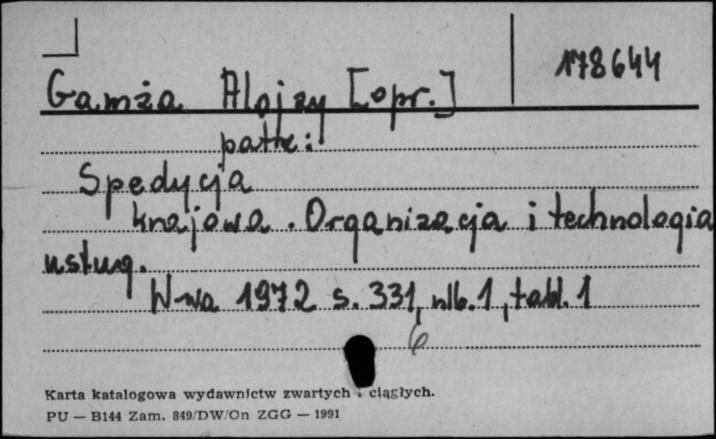 178644
Gamża Alojzy [opr.]
patrz:
Spedycja
krajowa. Organizacja i technologia
usług.
W-wa 1972 s. 331, nlb. 1, tabl. 1
6
Karta katalogowa wydawnictw zwartych i ciągłych.
PU — B144 Zam. 849/DW/On ZGG — 1991